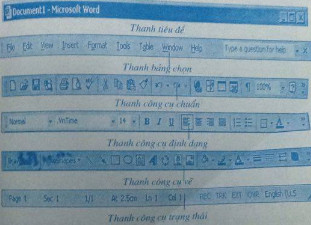 Document1 - Microsoft Word
Thanh tiêu đề
File Edit View Insert Format Tools Table Window Help Type a question for help
Thanh bảng chọn
100%
Thanh công cụ chuẩn
Normal .VnTime 14 B I U
Thanh công cụ định dạng
Thanh công cụ vẽ
Page 1 Sec 1 1/1 At 2.5cm Ln 1 Col 1 REC TRK EXT OVR English (U.S
Thanh công cụ trạng thái